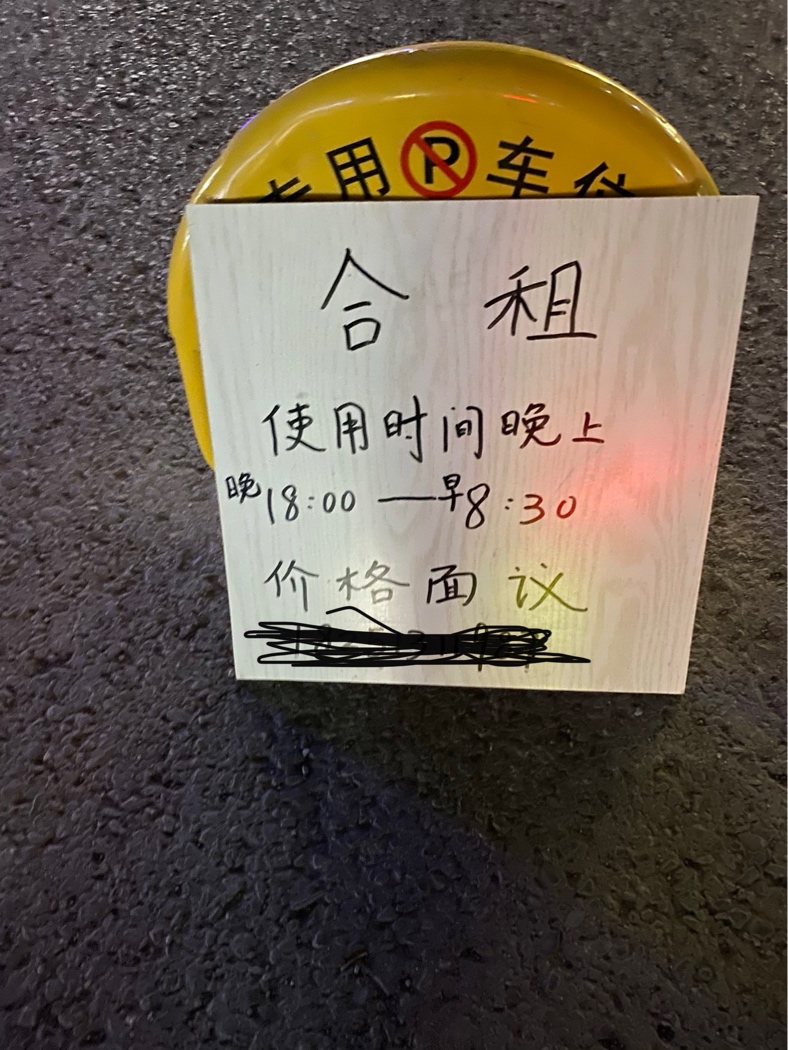 专用 P 车位
合租
使用时间晚上
晚18:00 — 早8:30
价格面议